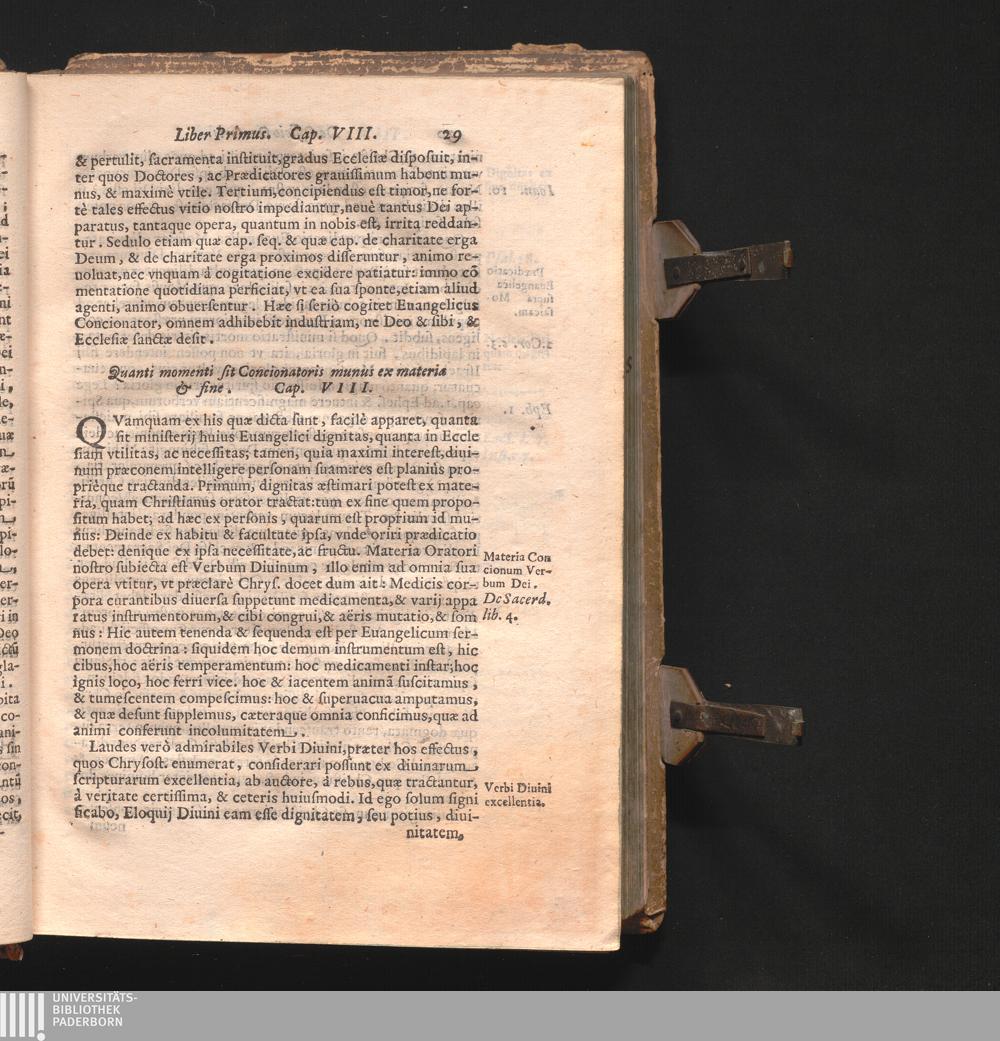 Liber Primus. Cap. VIII. 29
& pertulit, sacramenta instituit,gradus Ecclesiæ disposuit, in-
ter quos Doctores, ac Prædicatores grauissimum habent mu-
nus, & maximè vtile. Tertium,concipiendus est timor,ne for-
tè tales effectus vitio nostro impediantur,neuè tantus Dei ap-
paratus, tantaque opera, quantum in nobis est, irrita reddan-
tur. Sedulo etiam quæ cap. seq. & quæ cap. de charitate erga
Deum, & de charitate erga proximos disseruntur, animo re-
uoluat,nec vnquam à cogitatione excidere patiatur: immo cō
mentatione quotidiana perficiat, vt ea sua sponte,etiam aliud
agenti, animo obuersentur. Hæc si seriò cogitet Euangelicus
Concionator, omnem adhibebit industriam, ne Deo & sibi, &
Ecclesiæ sanctæ desit.
Quanti momenti sit Concionatoris munus ex materia
& fine. Cap. VIII.
QVamquam ex his quæ dicta sunt, facilè apparet, quanta
sit ministerij huius Euangelici dignitas,quanta in Eccle
siam vtilitas, ac necessitas; tamen, quia maximi interest,diui-
num præconem intelligere personam suam:res est planiùs pro-
prièque tractanda. Primum, dignitas æstimari potest ex mate-
ria, quam Christianus orator tractat:tum ex fine quem propo-
situm habet; ad hæc ex personis, quarum est proprium id mu-
nus: Deinde ex habitu & facultate ipsa, vnde oriri prædicatio
debet: denique ex ipsa necessitate,ac fructu. Materia Oratori
nostro subiecta est Verbum Diuinum, illo enim ad omnia sua
opera vtitur, vt præclarè Chrys. docet dum ait: Medicis cor-
pora curantibus diuersa suppetunt medicamenta,& varij appa
ratus instrumentorum,& cibi congrui,& aëris mutatio,& som
nus: Hic autem tenenda & sequenda est per Euangelicum ser-
monem doctrina: siquidem hoc demum instrumentum est, hic
cibus,hoc aëris temperamentum: hoc medicamenti instar,hoc
ignis loco, hoc ferri vice. hoc & iacentem animā suscitamus,
& tumescentem compescimus: hoc & superuacua amputamus,
& quæ desunt supplemus, cæteraque omnia conficimus,quæ ad
animi conferunt incolumitatem.
Laudes verò admirabiles Verbi Diuini,præter hos effectus,
quos Chrysost. enumerat, considerari possunt ex diuinarum
scripturarum excellentia, ab auctore, à rebus,quæ tractantur,
à veritate certissima, & ceteris huiusmodi. Id ego solum signi
ficabo, Eloquij Diuini eam esse dignitatem, seu potius, diui-
nitatem,
Materia Con
cionum Ver-
bum Dei.
De Sacerd.
lib. 4.
Verbi Diuini
excellentia.
UNIVERSITÄTS-
BIBLIOTHEK
PADERBORN